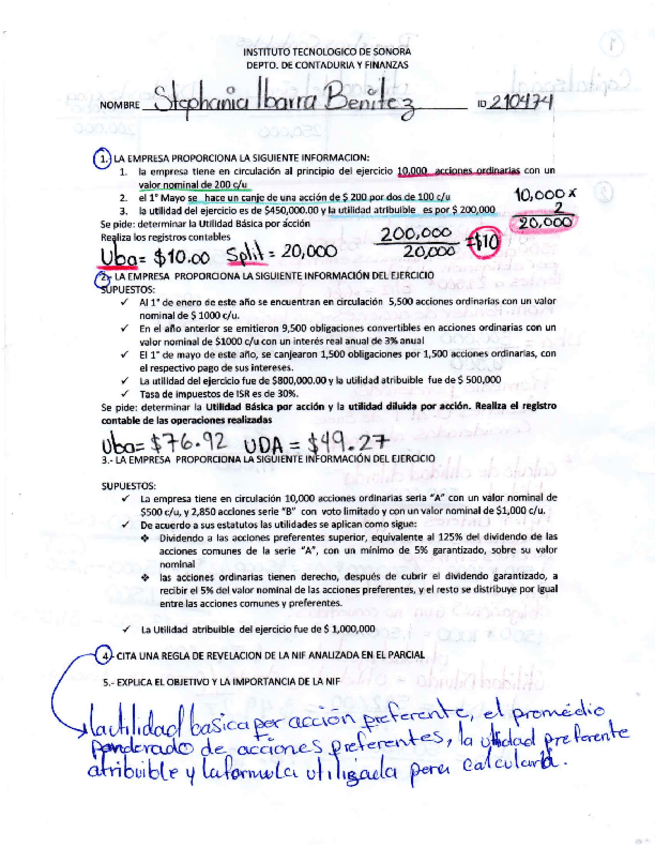 INSTITUTO TECNOLOGICO DE SONORA
DEPTO. DE CONTADURIA Y FINANZAS
NOMBRE Stephania Ibarra Benitez ID 210474
1. LA EMPRESA PROPORCIONA LA SIGUIENTE INFORMACION:
1. la empresa tiene en circulación al principio del ejercicio 10,000 acciones ordinarias con un
valor nominal de 200 c/u
2. el 1° Mayo se hace un canje de una acción de $ 200 por dos de 100 c/u
3. la utilidad del ejercicio es de $450,000.00 y la utilidad atribuible es por $ 200,000
10,000 x
2
20,000
Se pide: determinar la Utilidad Básica por acción
Realiza los registros contables
200,000
20,000
=$10
Uba= $10.00 Split = 20,000
2.- LA EMPRESA PROPORCIONA LA SIGUIENTE INFORMACIÓN DEL EJERCICIO
SUPUESTOS:
✓ Al 1° de enero de este año se encuentran en circulación 5,500 acciones ordinarias con un valor
nominal de $ 1000 c/u.
✓ En el año anterior se emitieron 9,500 obligaciones convertibles en acciones ordinarias con un
valor nominal de $1000 c/u con un interés real anual de 3% anual
✓ El 1° de mayo de este año, se canjearon 1,500 obligaciones por 1,500 acciones ordinarias, con
el respectivo pago de sus intereses.
✓ La utilidad del ejercicio fue de $800,000.00 y la utilidad atribuible fue de $ 500,000
✓ Tasa de impuestos de ISR es de 30%.
Se pide: determinar la Utilidad Básica por acción y la utilidad diluida por acción. Realiza el registro
contable de las operaciones realizadas
Uba= $76.92 UDA = $49.27
3.- LA EMPRESA PROPORCIONA LA SIGUIENTE INFORMACIÓN DEL EJERCICIO
SUPUESTOS:
✓ La empresa tiene en circulación 10,000 acciones ordinarias seria "A" con un valor nominal de
$500 c/u, y 2,850 acciones serie "B" con voto limitado y con un valor nominal de $1,000 c/u.
✓ De acuerdo a sus estatutos las utilidades se aplican como sigue:
❖ Dividendo a las acciones preferentes superior, equivalente al 125% del dividendo de las
acciones comunes de la serie "A", con un mínimo de 5% garantizado, sobre su valor
nominal
❖ las acciones ordinarias tienen derecho, después de cubrir el dividendo garantizado, a
recibir el 5% del valor nominal de las acciones preferentes, y el resto se distribuye por igual
entre las acciones comunes y preferentes.
✓ La Utilidad atribuible del ejercicio fue de $ 1,000,000
4.- CITA UNA REGLA DE REVELACION DE LA NIF ANALIZADA EN EL PARCIAL
5.- EXPLICA EL OBJETIVO Y LA IMPORTANCIA DE LA NIF
la utilidad basica por acción preferente, el promedio
ponderado de acciones preferentes, la utilidad preferente
atribuible y la formula utilizada para calcularla.